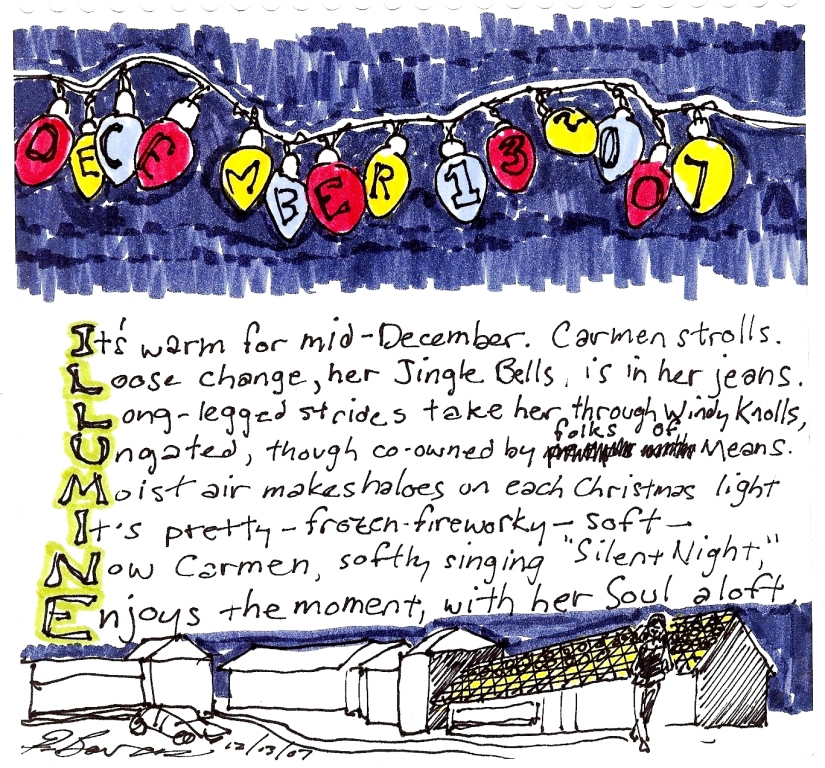 DECEMBER 13 2007
It's warm for mid-December. Carmen strolls.
Loose change, her Jingle Bells, is in her jeans.
Long-legged strides take her through Windy Knolls,
Ungated, though co-owned by folks of Means.
Moist air makes haloes on each Christmas light
It's pretty - frozen-fireworky - soft -
Now Carmen, softly singing "Silent Night,"
Enjoys the moment, with her Soul aloft.
12/13/07